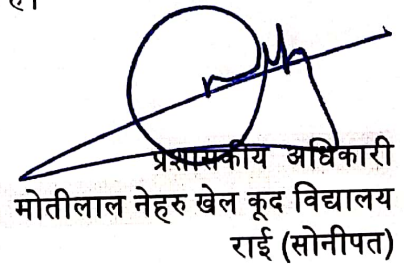 प्रशासकीय अधिकारी
मोतीलाल नेहरु खेल कूद विद्यालय
राई (सोनीपत)